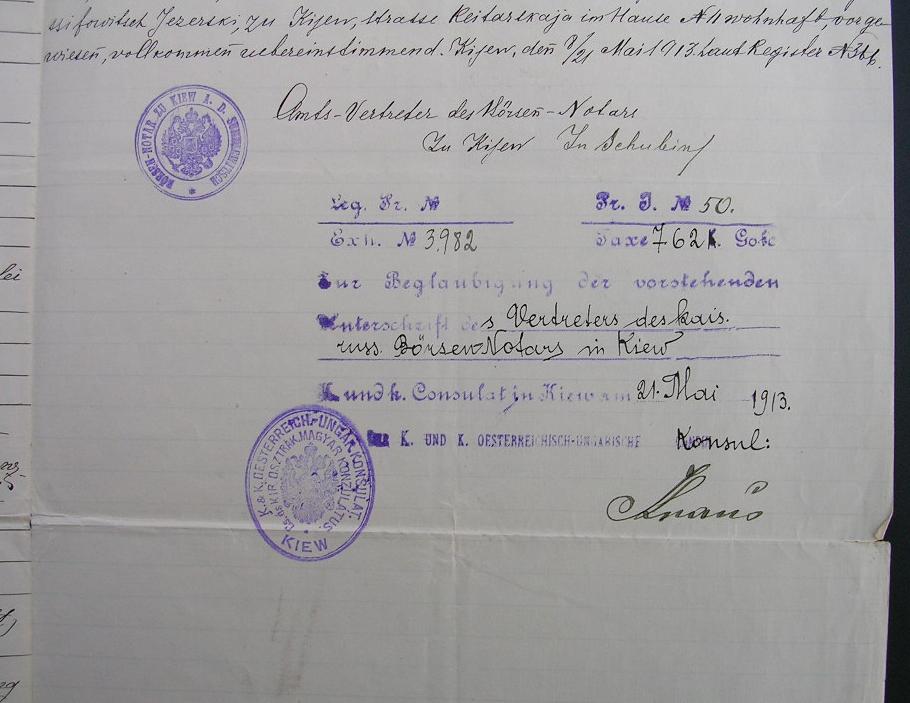 ssifowitsch Jezerski, zu Kijew, Strasse Reitarskaja im Hause N 11 wohnhaft, vorge
wiesen, vollkommen uebereinstimmend. Kijew, den 8/21 Mai 1913. Laut Register N
Amts-Vertreter des Börsen-Notars
Zu Kijew In Schubin
BÖRSEN-NOTAR ZU KIEW A. D.
Leg. Pr. №
Pr. J. № 50.
Exh. № 3982
Taxe 7 62 K.
Zur Beglaubigung der vorstehenden
Unterschrift des Vertreters des kais.
russ. Börsen Notars in Kiew
K und k. Consulat in Kiew am 21. Mai 1913.
Der K. UND K. OESTERREICHISCH-UNGARISCHE Konsul:
K. & K. OESTERREICH-UNGAR. KONSULAT.
CS. ÉS KIR. OSZTRÁK-MAGYAR KONZULATUS.
KIEW
lei